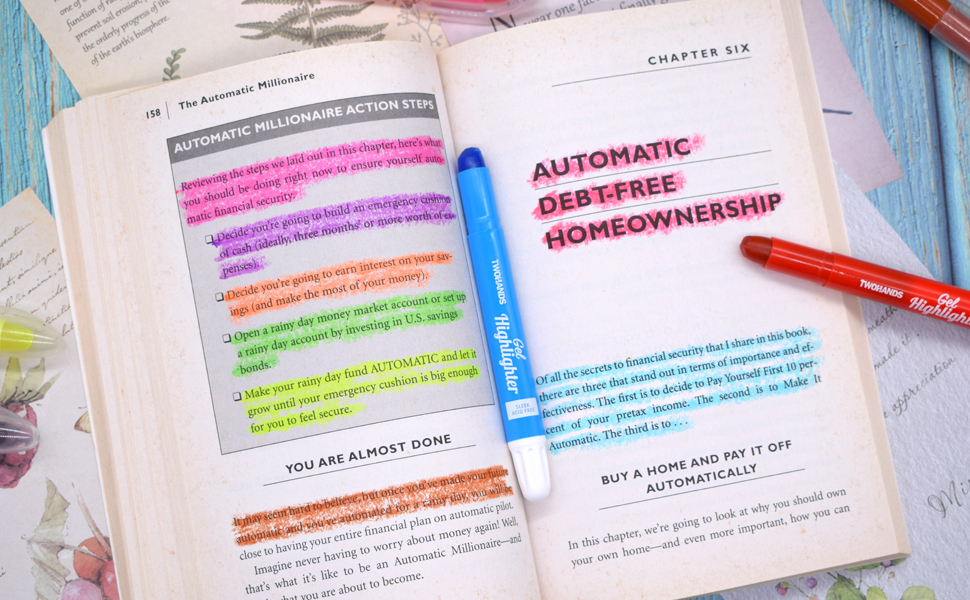 one of
root
prevent soil erosion,
the orderly progress of the
of the earth's biosphere.
158 | The Automatic Millionaire
AUTOMATIC MILLIONAIRE ACTION STEPS
Reviewing the steps we laid out in this chapter, here's what
you should be doing right now to ensure yourself auto-
matic financial security.
❏ Decide you're going to build an emergency cushion
of cash (ideally, three months' or more worth of ex-
penses).
❏ Decide you're going to earn interest on your sav-
ings (and make the most of your money).
❏ Open a rainy day money market account or set up
a rainy day account by investing in U.S. savings
bonds.
❏ Make your rainy day fund AUTOMATIC and let it
grow until your emergency cushion is big enough
for you to feel secure.
YOU ARE ALMOST DONE
It may seem hard to believe, but once you've made your future
automatic and you've automated for a rainy day, you will be
close to having your entire financial plan on automatic pilot.
Imagine never having to worry about money again! Well,
that's what it's like to be an Automatic Millionaire—and
that you are about to become.
TWOHANDS
Gel
Highlighter
ACID FREE
year one
CHAPTER SIX
AUTOMATIC
DEBT-FREE
HOMEOWNERSHIP
TWOHANDS
Gel
Highlighter
Of all the secrets to financial security that I share in this book,
there are three that stand out in terms of importance and ef-
fectiveness. The first is to decide to Pay Yourself First 10 per-
cent of your pretax income. The second is to Make It
Automatic. The third is to . . .
BUY A HOME AND PAY IT OFF
AUTOMATICALLY
In this chapter, we're going to look at why you should own
your own home—and even more important, how you can